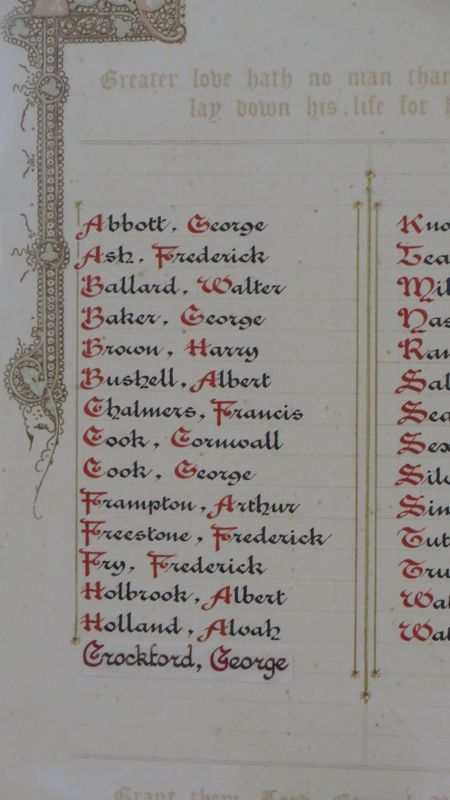 Greater love hath no man than
lay down his life for
Abbott, George
Ash, Frederick
Ballard, Walter
Baker, George
Brown, Harry
Bushell, Albert
Chalmers, Francis
Cook, Cornwall
Cook, George
Frampton, Arthur
Freestone, Frederick
Fry, Frederick
Holbrook, Albert
Holland, Alvah
Crockford, George
Kno
Lea
Mil
Nas
Ran
Sal
Sea
Sex
Silv
Sim
Tut
Tru
Wal
Wal
Grant them, Lord,